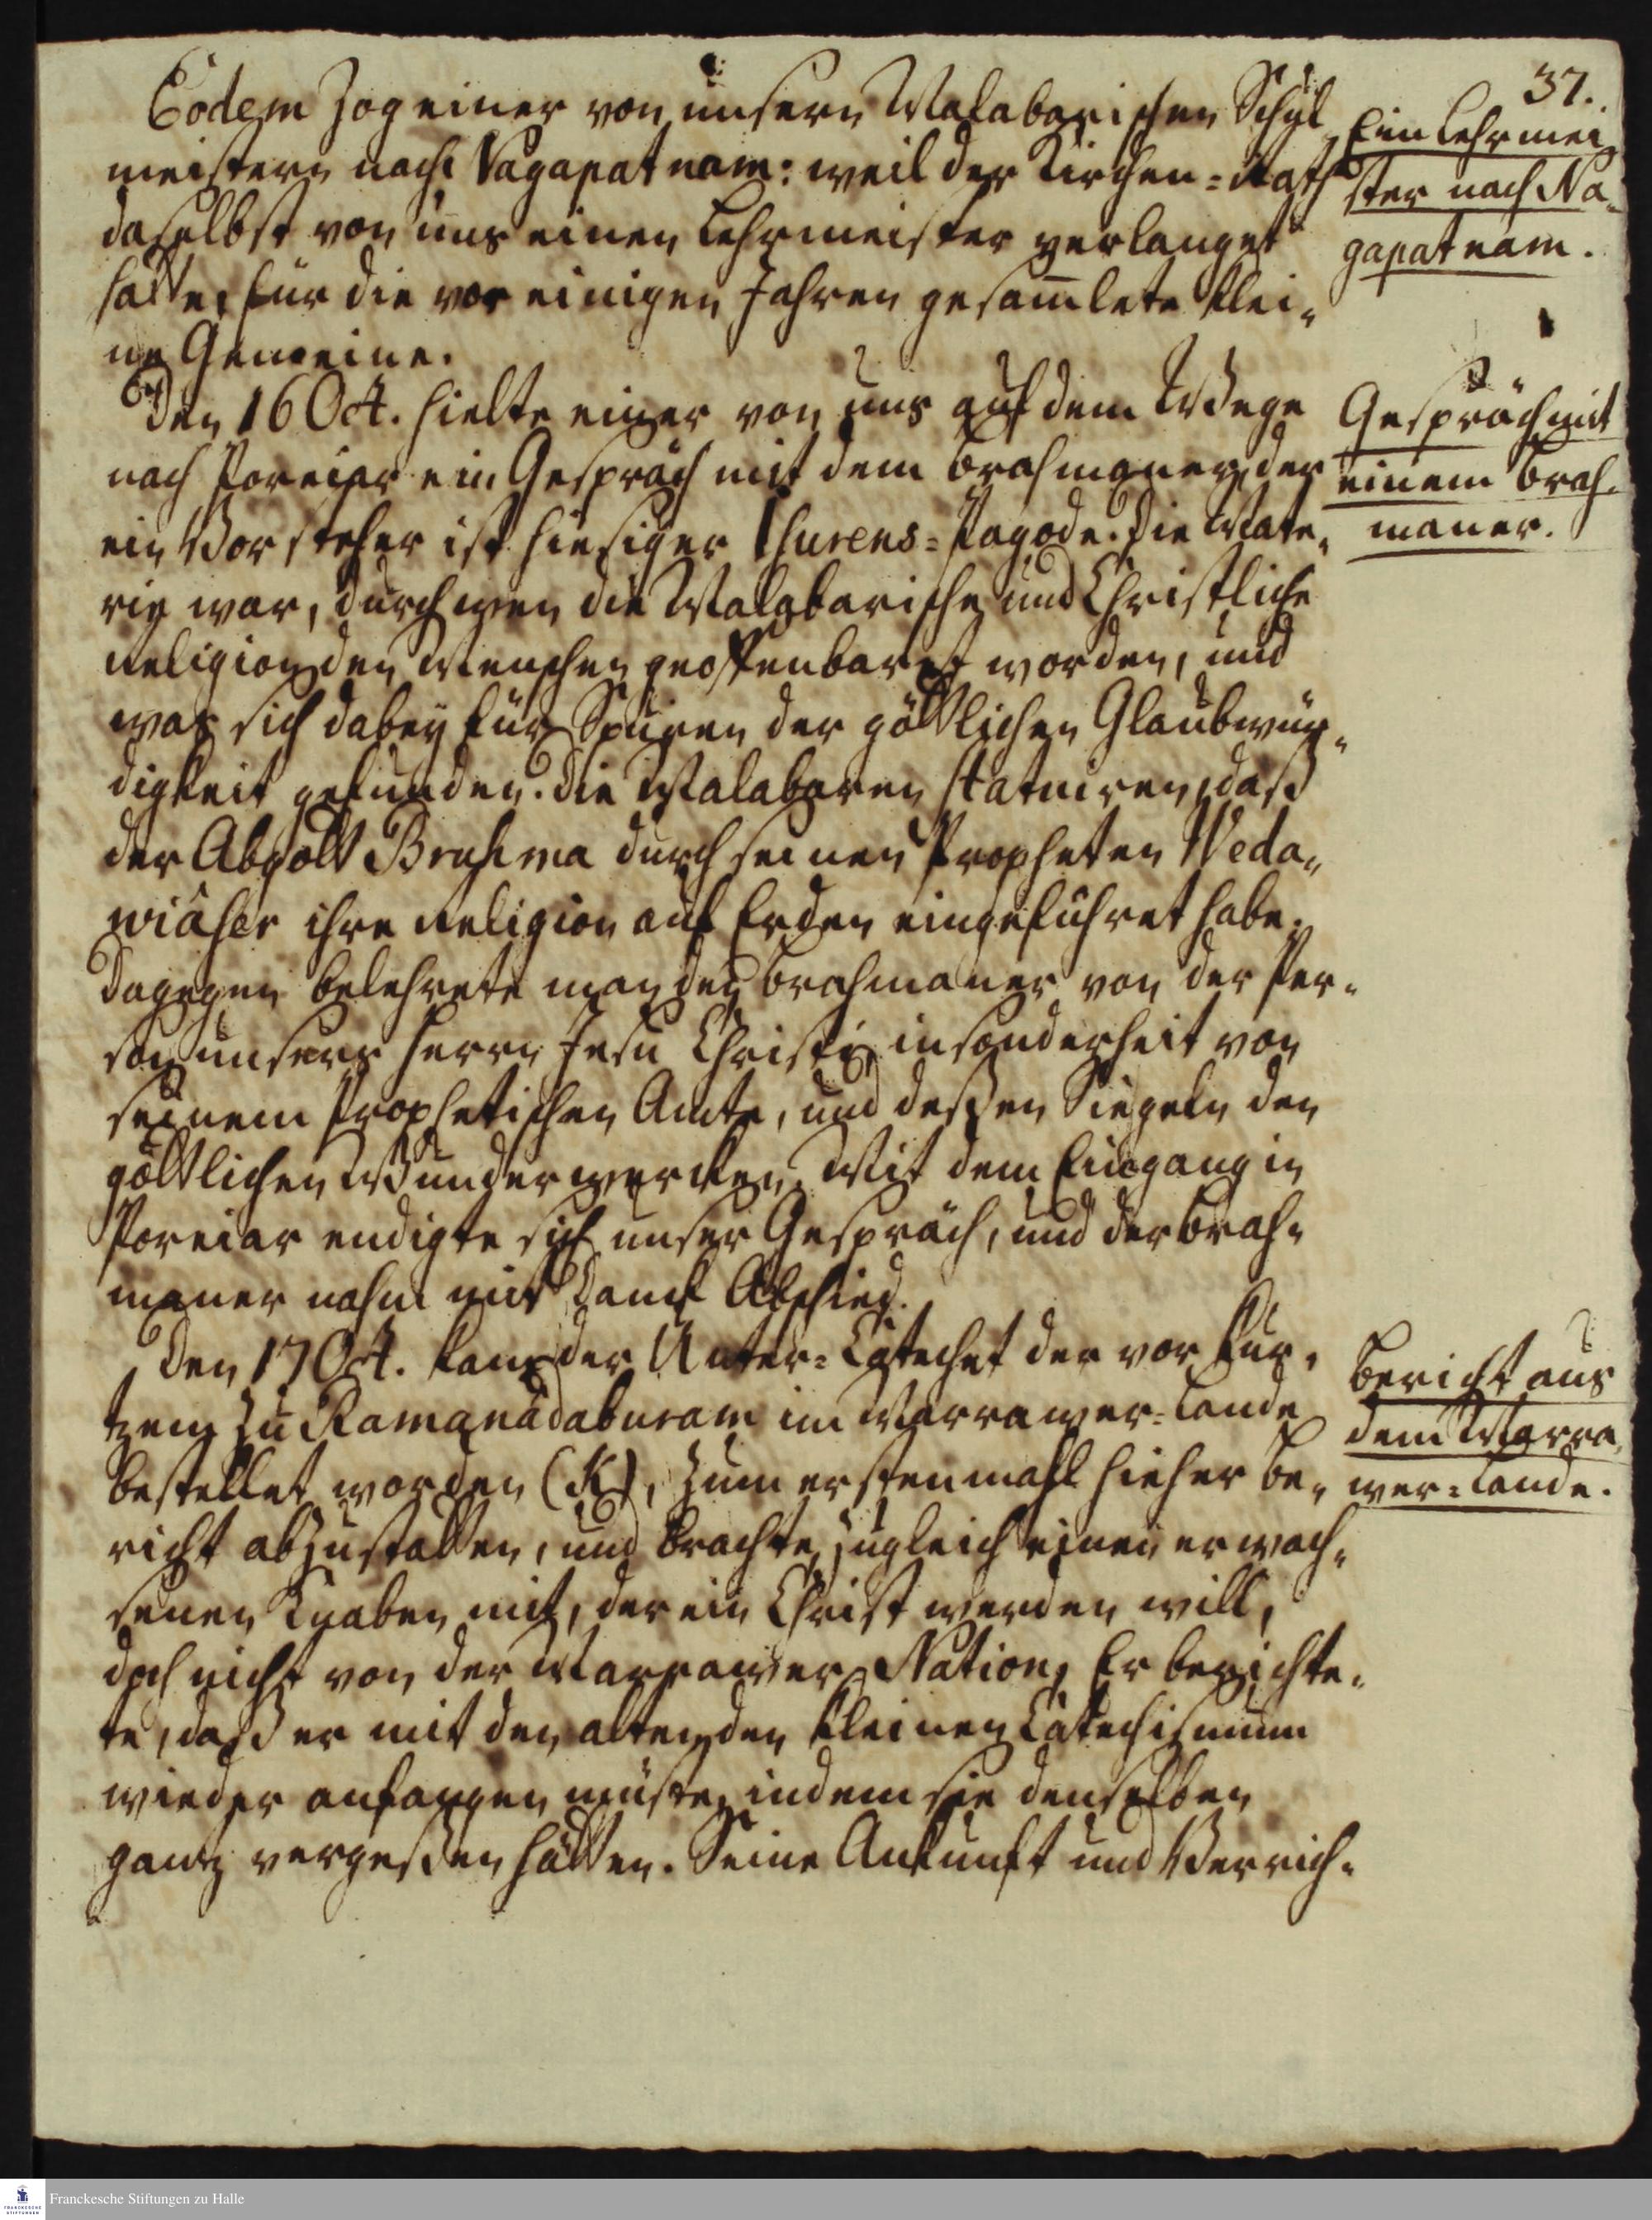 37.
Eodem zog einer von unsern Malabarischen Schul
meistern nach Nagapatnam: weil der Kirchen=Rath
daselbst von uns einen Lehrmeister verlanget
hatte, für die vor einigen Jahren gesam̄lete klei„
ne Gemeine.
Ein Lehrmei
ster nach Na„
gapatnam.
Den 16 Oct. hielte einer von uns auf dem Wege
nach Poreiar ein Gespräch mit dem Brahmaner, der
ein Vorsteher ist hiesiger Isurens=Pagode. Die Mate„
rie war, durch wen die Malabarische und Christliche
Religion den Menschen geoffenbaret worden, und
was sich dabey für Spuren der göttlichen Glaubwür„
digkeit gefunden. Die Malabaren statuiren, daß
der Abgott Bruhma durch seinen Propheten Weda„
wiaser ihre Religion auf Erden eingeführet habe.
Dagegen belehrete man den Brahmaner von der Per„
son unsers Herrn Jesu Christi, insonderheit von
seinem Prophetischen Amte, und deßen Siegeln den
göttlichen Wunderwercken. Mit dem Eingang in
Poreiar endigte sich unser Gespräch, und der Brah„
maner nahm mit Danck Abschied.
Gespräch mit
einem Brah„
maner.
Den 17 Oct. kam der Unter=Catechet der vor kur„
tzem zu Ramanadaburam im Marrawer=Lande
bestellet worden (K), zum erstenmahl hieher Be„
richt abzustatten, und brachte zugleich einen erwach„
senen Knaben mit, der ein Christ werden will,
doch nicht von der Marrawer Nation. Er berichte„
te, daß er mit den alten den kleinen Catechismum
wieder anfangen müste, indem sie denselben
gantz vergeßen hätten. Seine Ankunft und Verrich„
Bericht aus
dem Marra„
wer=Lande.
Franckesche Stiftungen zu Halle